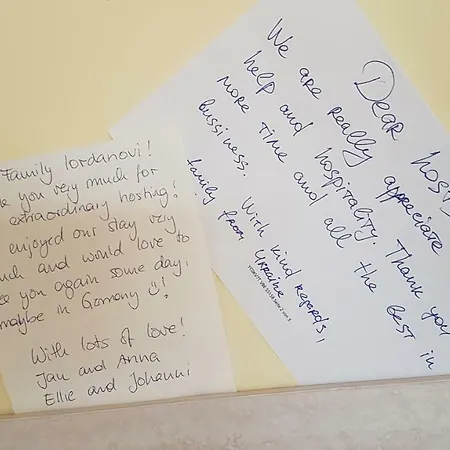 Family Iordanovi!
you very much for
extraordinary hosting!
enjoyed our stay very
and would love to
you again some day,
maybe in Germany ☺!
With lots of love!
Jan and Anna
Ellie and Johanni
Dear
We are really appreciate
help and hospitality. Thank you
more time and all the best in
bussiness.
With kind regards,
family from Ukraine